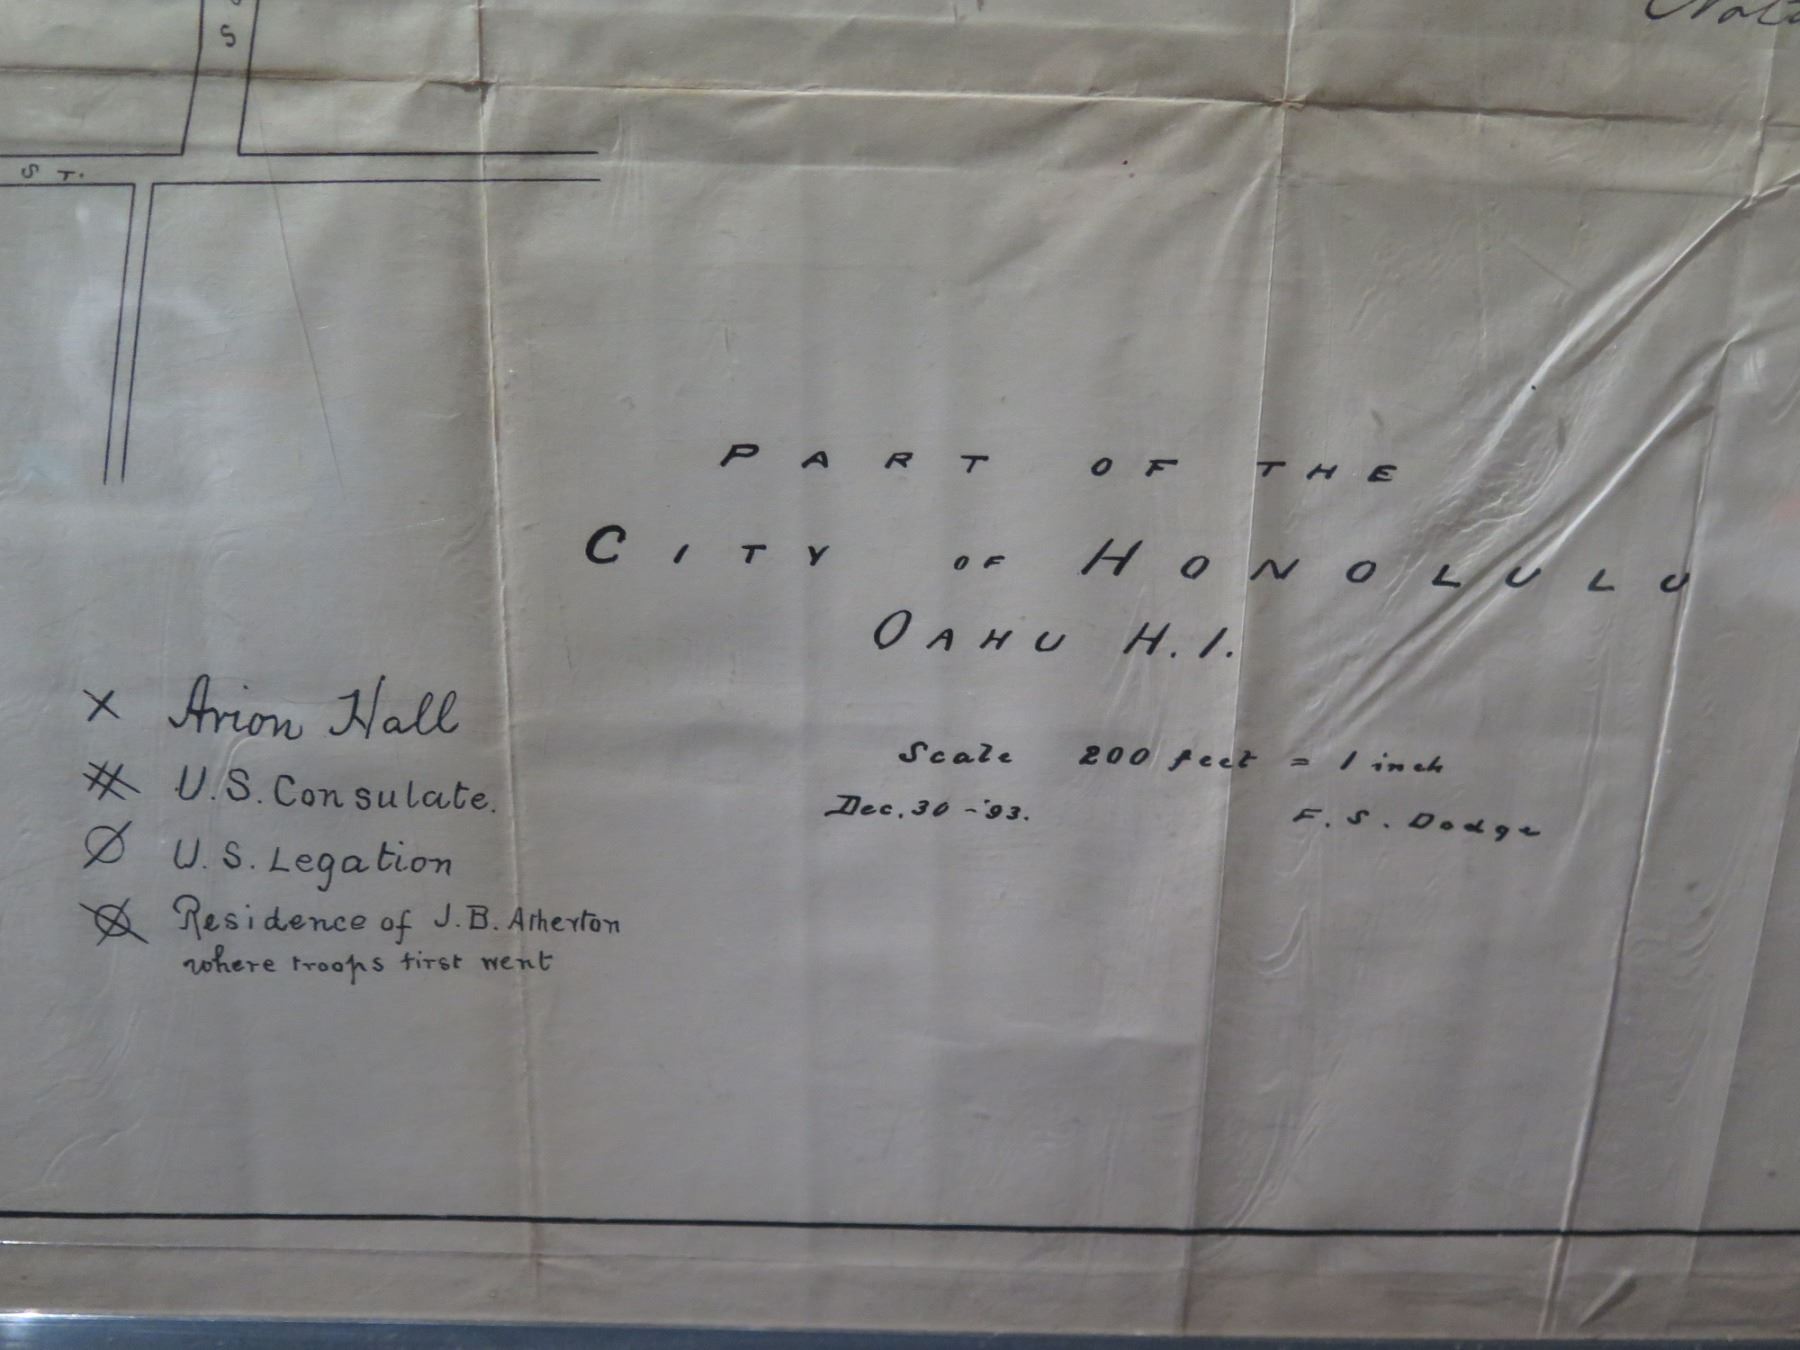 S
S T.
PART OF THE
CITY OF HONOLULU
OAHU H.I.
Scale 200 feet = 1 inch
Dec. 30 - '93. F. S. Dodge
X Arion Hall
# U.S. Consulate.
Ø U.S. Legation
Residence of J.B. Atherton
where troops first went